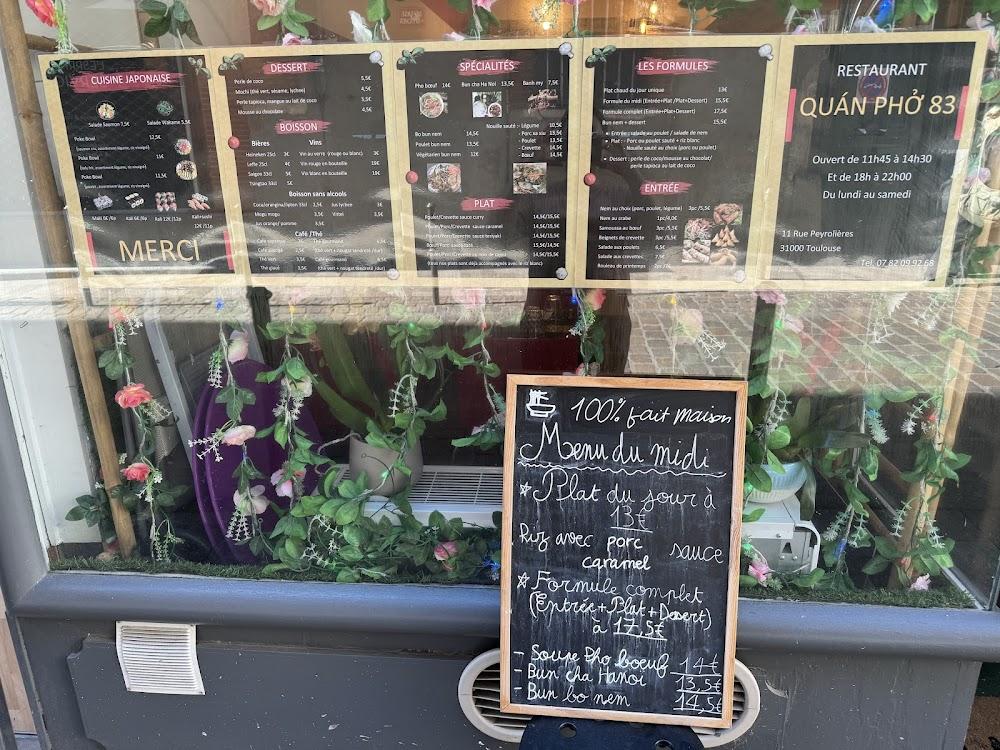 CUISINE JAPONAISE
Salade Saumon 7,5€
Salade Wakame 5,5€
Poke Bowl 12,5€
Poke Bowl 11€
Poke Bowl 11,5€
Maki 6€ /6p
Kali 6€ /6p
Kali 12€ /12p
Kali+sushi
12€ /11p
MERCI
DESSERT
Perle de coco 5,5€
Mochi (thé vert, sésame, lychee) 4,5€
Perle tapioca, mangue au lait de coco 5,5€
Mousse au chocolat 4,5€
BOISSON
Bières
Heineken 25cl 3€
Leffe 25cl 4€
Saigon 33cl 5€
Tsingtao 33cl 5€
Vins
Vin au verre (rouge ou blanc) 3€
Vin rouge en bouteille 19€
Vin blanc en bouteille 19€
Boisson sans alcools
Coca/orangina/lipton 33cl 2,5€
Mogu mogu 3,5€
Jus orange/ pomme 3,5€
Jus lychee 3€
Vittel 3,5€
Café /Thé
Thé vert 3,5€
Thé glacé 3,5€
SPÉCIALITÉS
Pho bœuf 14€
Bun cha Ha Noi 13,5€
Banh my 7,5€
Bo bun nem 14,5€
Poulet bun nem 13€
Végétarien bun nem 12€
Nouille sauté :- Légume 10,5€
- Porc 13,5€
- Poulet 12,5€
- Crevette 14,5€
- Bœuf 14,5€
PLAT
Poulet/Crevette sauce curry 14,5€/15,5€
Poulet/Porc/Crevette sauce caramel 14,5€/15,5€
Poulet/Porc/Crevette sauce teriyaki 14,5€/15,5€
(tous nos plats sont déjà accompagnés avec le riz blanc)
LES FORMULES
Plat chaud du jour unique 13€
Formule du midi (Entrée+Plat /Plat+Dessert) 15,5€
Formule complet (Entrée+Plat+Dessert) 17,5€
Bun nem + dessert 15,5€
Entrée : salade au poulet / salade de nem
Plat : - Porc ou poulet sauté + riz blanc
- Nouille sauté au choix (porc ou poulet)
Dessert : perle de coco/mousse au chocolat/
perle tapioca au lait de coco
ENTRÉE
Nem au choix (porc, poulet, légume) 3pc /5,5€
Nem au crabe 1pc/4,0€
Samoussa au bœuf 3pc /5,5€
Beignets de crevette 3pc /5,5€
Salade au poulets 6,5€
Salade aux crevettes 7,5€
Rouleau de printemps
RESTAURANT
QUÁN PHỞ 83
Ouvert de 11h45 à 14h30
Et de 18h à 22h00
Du lundi au samedi
11 Rue Peyrolières
31000 Toulouse
Tel: 07 82 09 92 68
100% fait maison
Menu du midi
Plat du jour à
13€
Riz avec porc sauce
caramel
Formule complet
(Entrée+Plat+Desert)
à 17,5€
- Soupe Pho boeuf 14€
- Bun cha Hanoi 13,5€
- Bun bo nem 14,5€